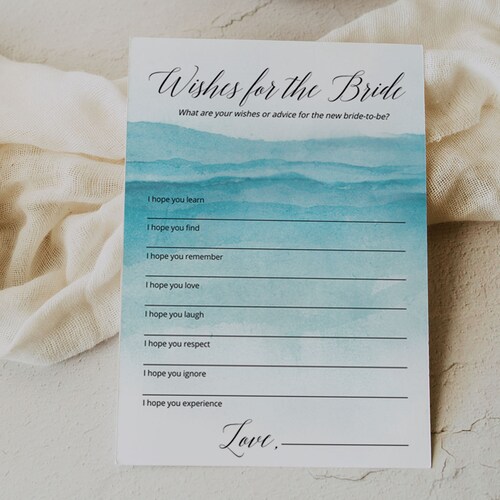 Wishes for the Bride
What are your wishes or advice for the new bride-to-be?
I hope you learn
I hope you find
I hope you remember
I hope you love
I hope you laugh
I hope you respect
I hope you ignore
I hope you experience
Love,